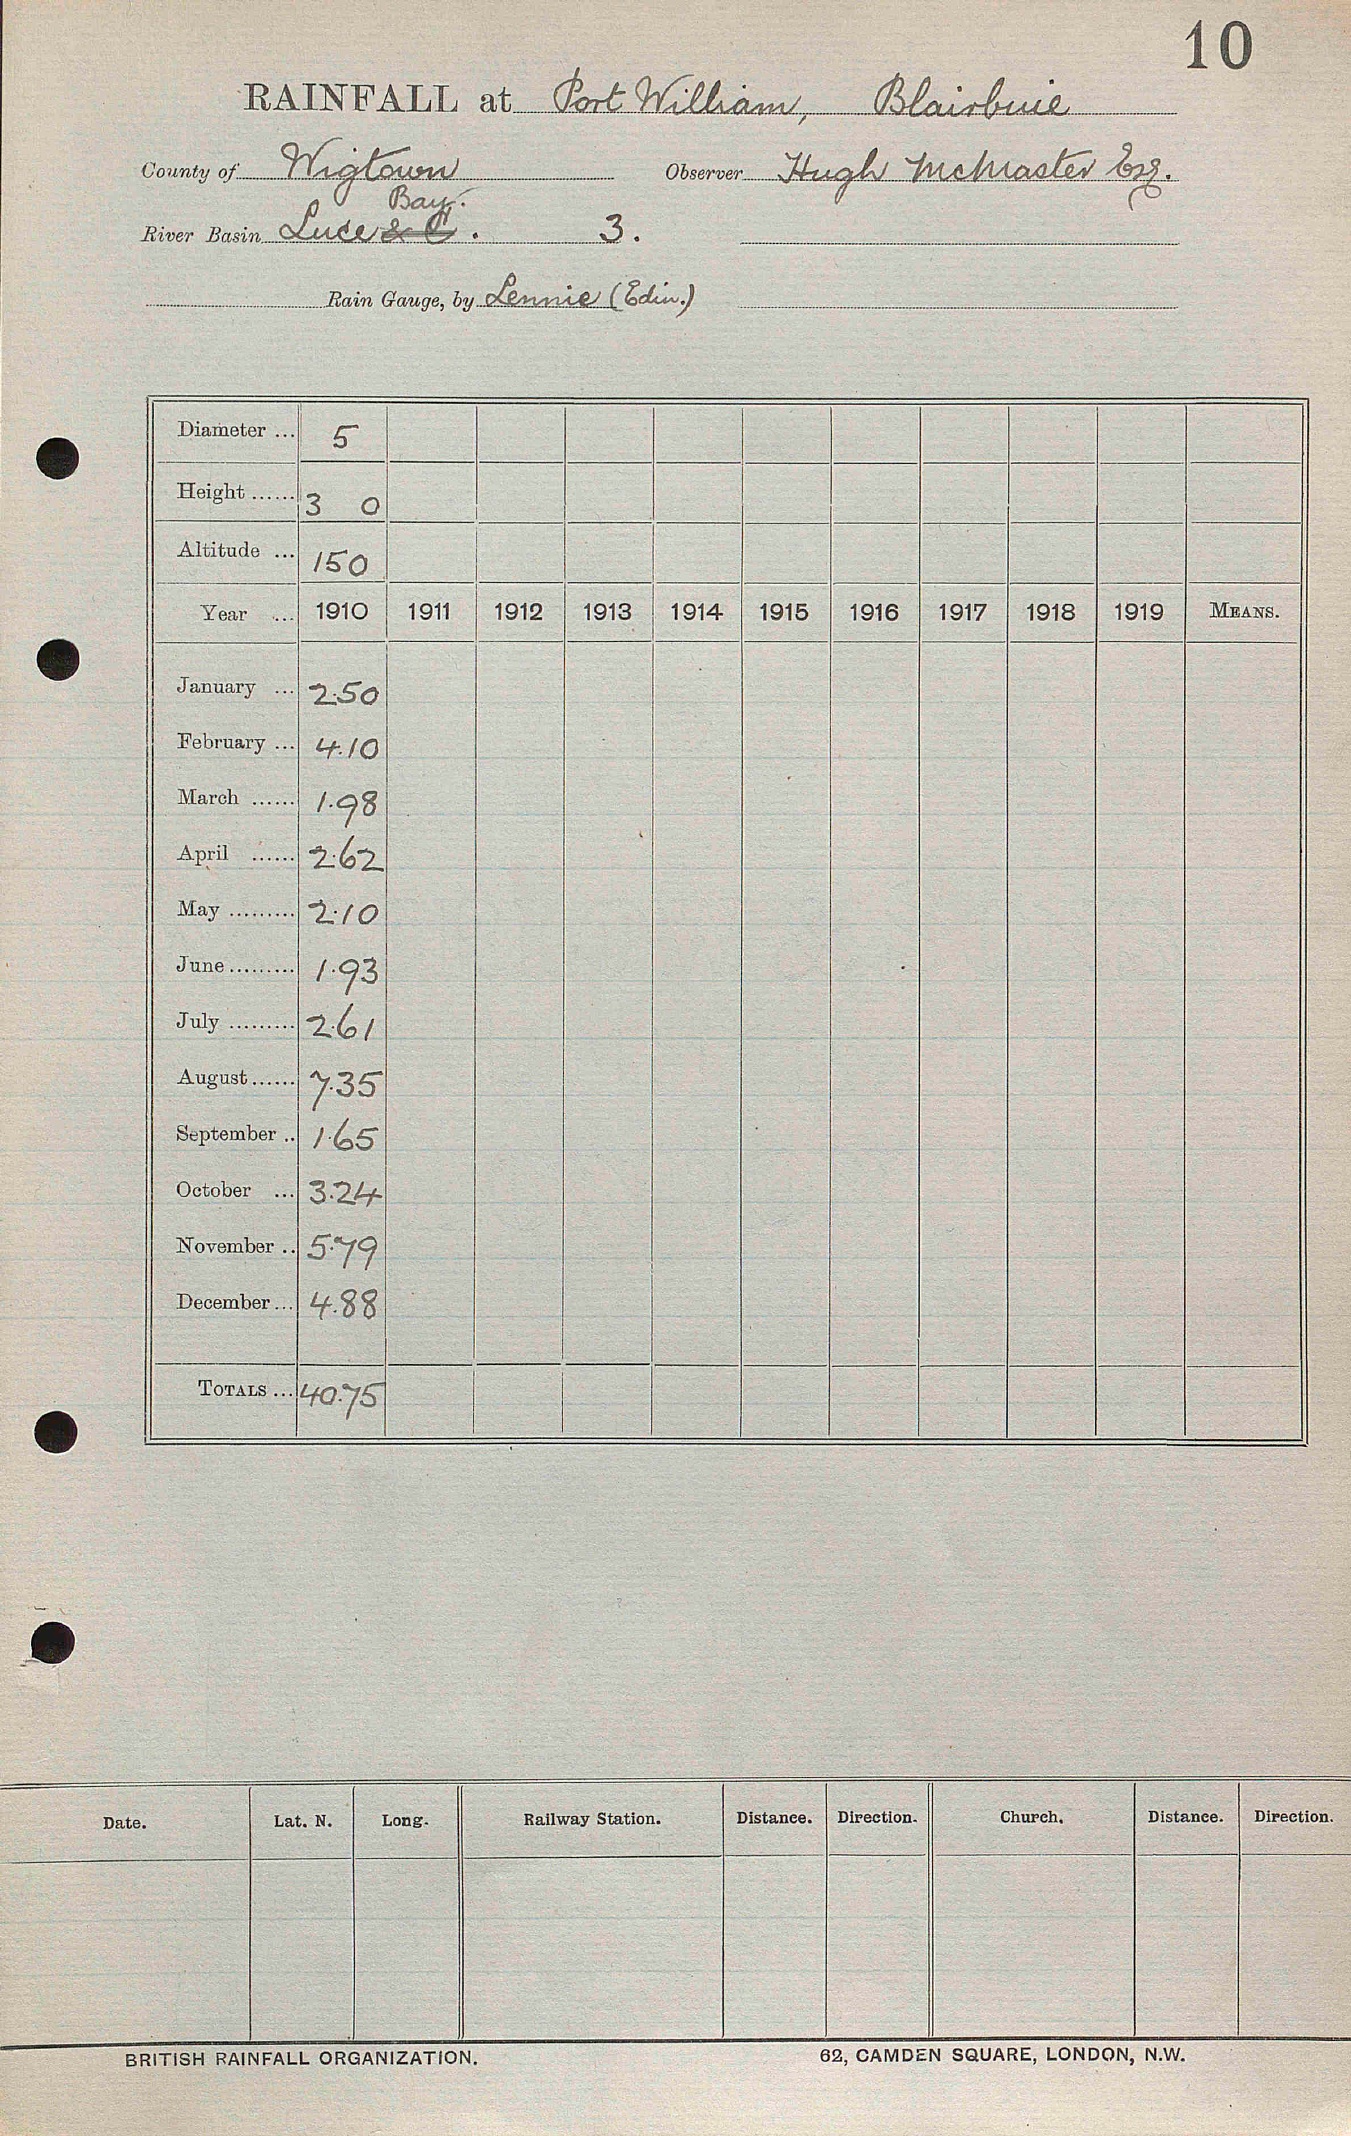 10
RAINFALL at Port William, Blairbuie
County of Wigtown Observer Hugh McMaster Esq.
Bay.
River Basin Luce & C. 3.
Rain Gauge, by Lennie (Edin.)
Diameter ... 5
Height ...... 3 0
Altitude ... 150
Year ... 1910 1911 1912 1913 1914 1915 1916 1917 1918 1919 MEANS.
January ... 2.50
February ... 4.10
March ...... 1.98
April ...... 2.62
May ......... 2.10
June ......... 1.93
July ......... 2.61
August ...... 7.35
September .. 1.65
October ... 3.24
November .. 5.79
December ... 4.88
TOTALS ... 40.75
Date. Lat. N. Long. Railway Station. Distance. Direction. Church. Distance. Direction.
BRITISH RAINFALL ORGANIZATION. 62, CAMDEN SQUARE, LONDON, N.W.